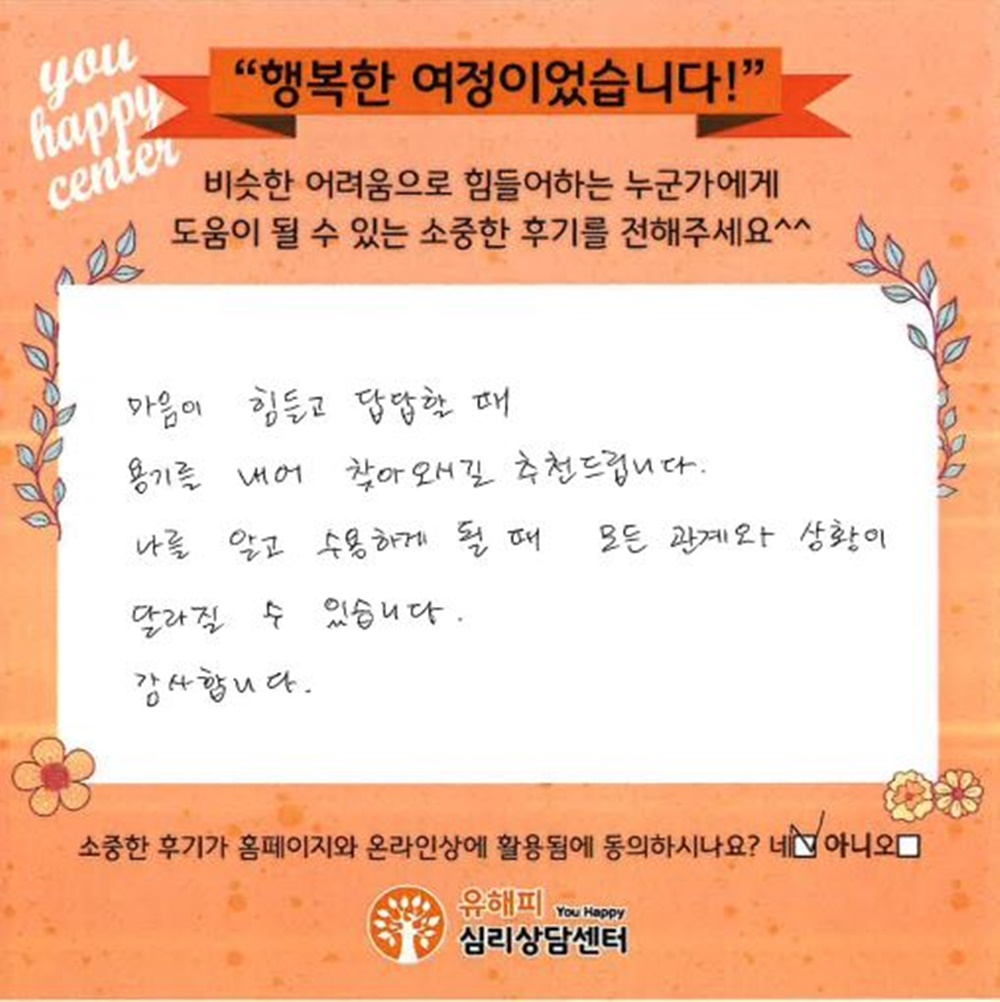 you
happy
center
“행복한 여정이었습니다!”
비슷한 어려움으로 힘들어하는 누군가에게
도움이 될 수 있는 소중한 후기를 전해주세요^^
마음이 힘들고 답답할 때
용기를 내어 찾아오시길 추천드립니다.
나를 알고 수용하게 될 때 모든 관계와 상황이
달라질 수 있습니다.
감사합니다.
소중한 후기가 홈페이지와 온라인상에 활용됨에 동의하시나요? 네☑ 아니오☐
유해피 You Happy
심리상담센터